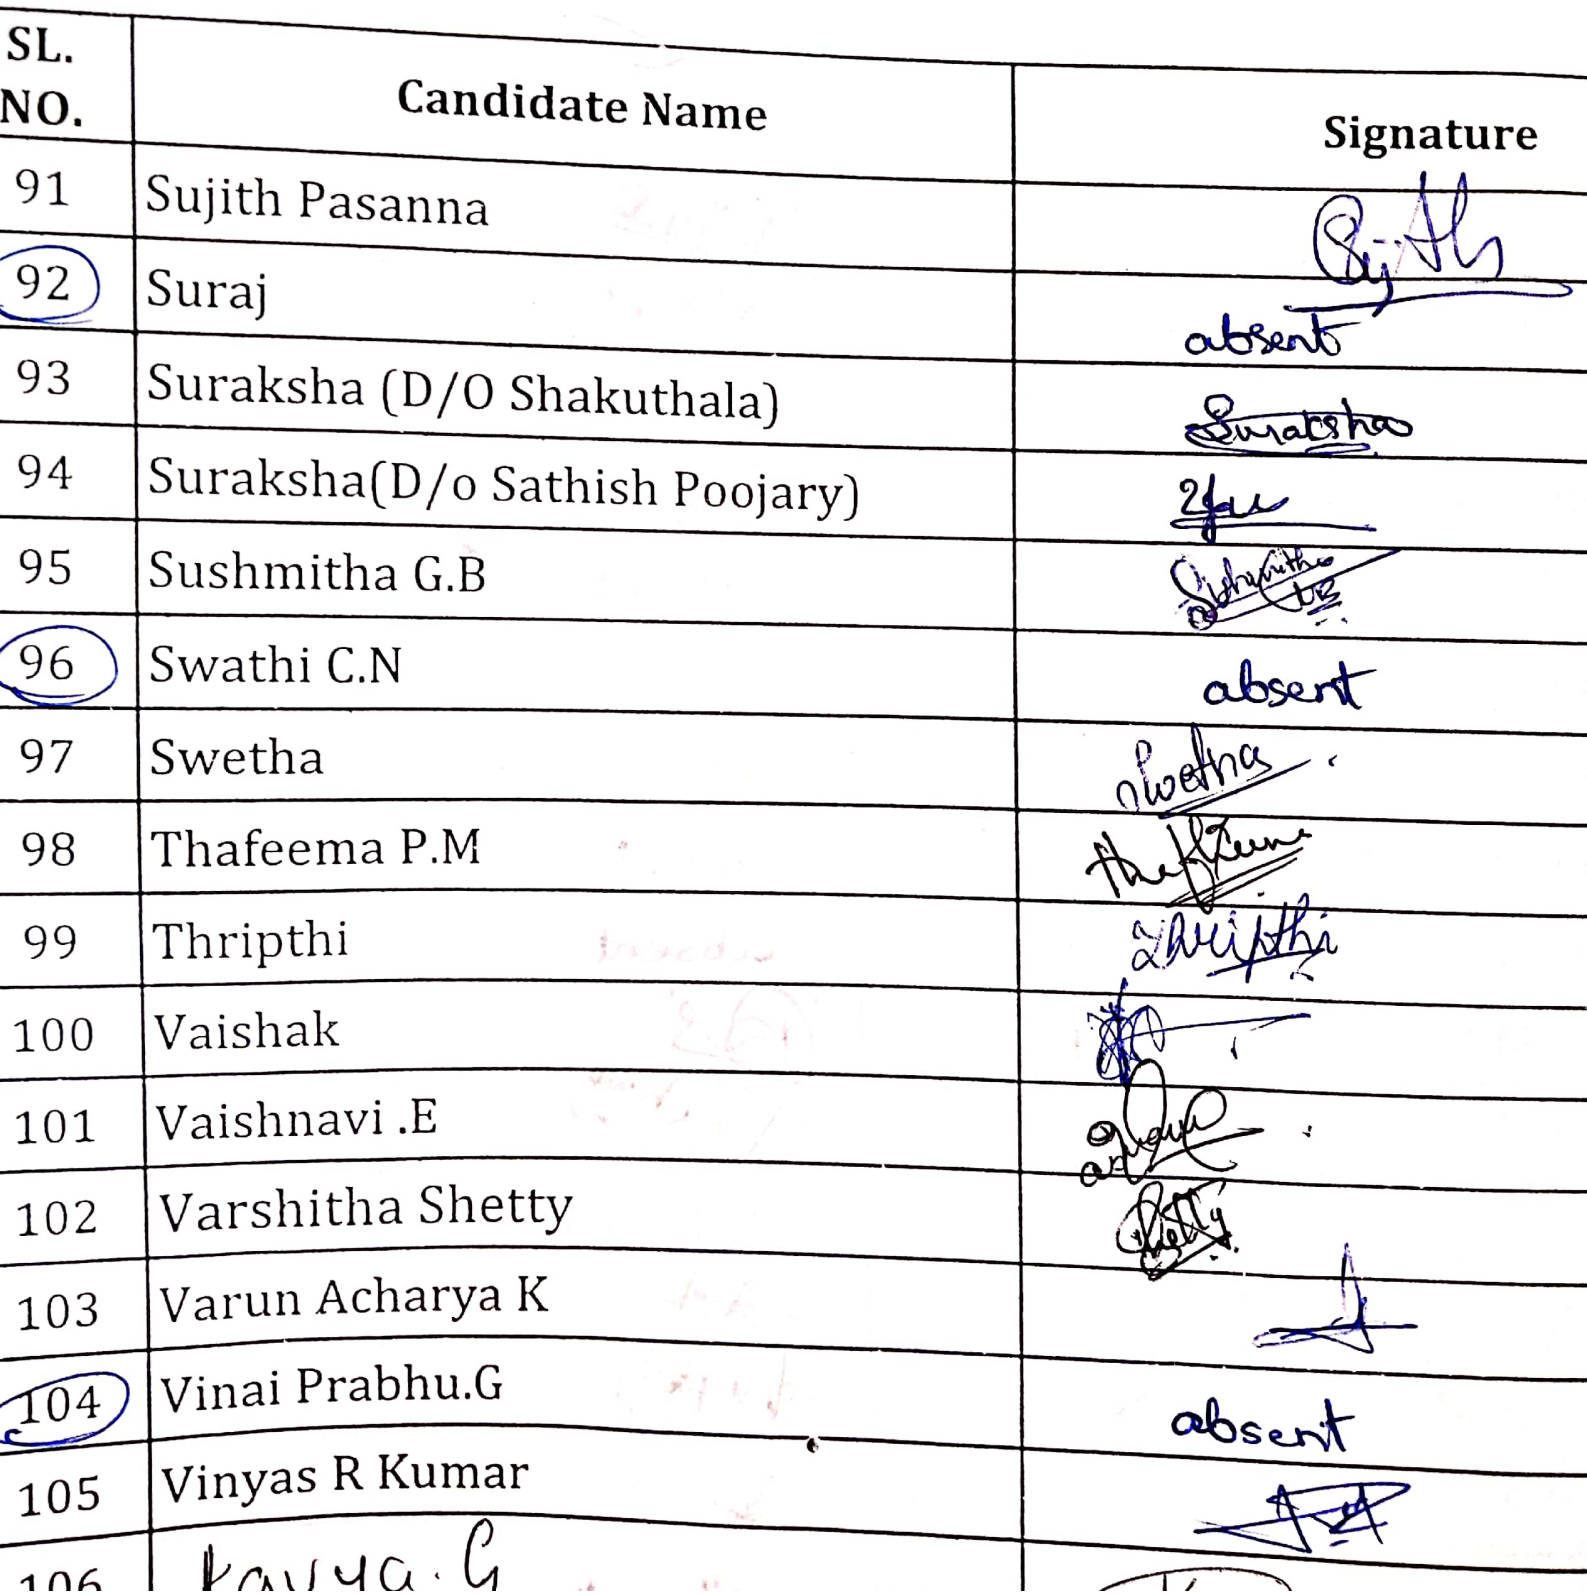 SL. NO. Candidate Name Signature
91 Sujith Pasanna Sujith
92 Suraj absent
93 Suraksha (D/O Shakuthala) Suraksha
94 Suraksha(D/o Sathish Poojary)
95 Sushmitha G.B Sushmitha
96 Swathi C.N absent
97 Swetha Swetha
98 Thafeema P.M
99 Thripthi Thripthi
100 Vaishak
101 Vaishnavi .E
102 Varshitha Shetty Shetty
103 Varun Acharya K
104 Vinai Prabhu.G absent
105 Vinyas R Kumar
106 Kavya. G